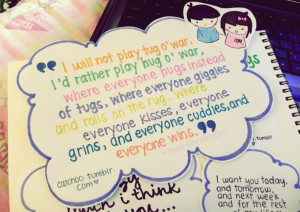 " I will not play tug o' war.
I'd rather play 'hug o' war,
where everyone hugs instead
of tugs, where everyone giggles
and rolls on the rug, where
everyone kisses, everyone
grins, and everyone cuddles,and
everyone wins. "
catchoo.tumblr
.com
with i think
I want you today,
and tomorrow,
and next week
and for the rest